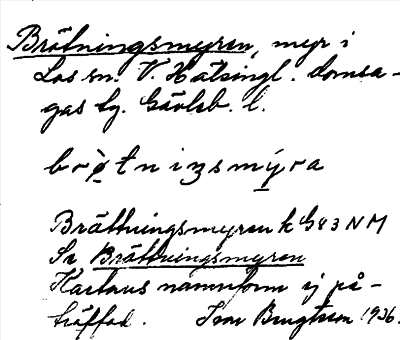 Brötningsmyren, myr i
Los sn. V. Hälsingl. domsa-
gas tg. Gävleb. l.
brø̀tnizsmýra
Brättningsmyren k G 83 NM
Se Brättningsmyren
Kartans namnform ej på-
träffad. Ivar Bengtsson 1936.